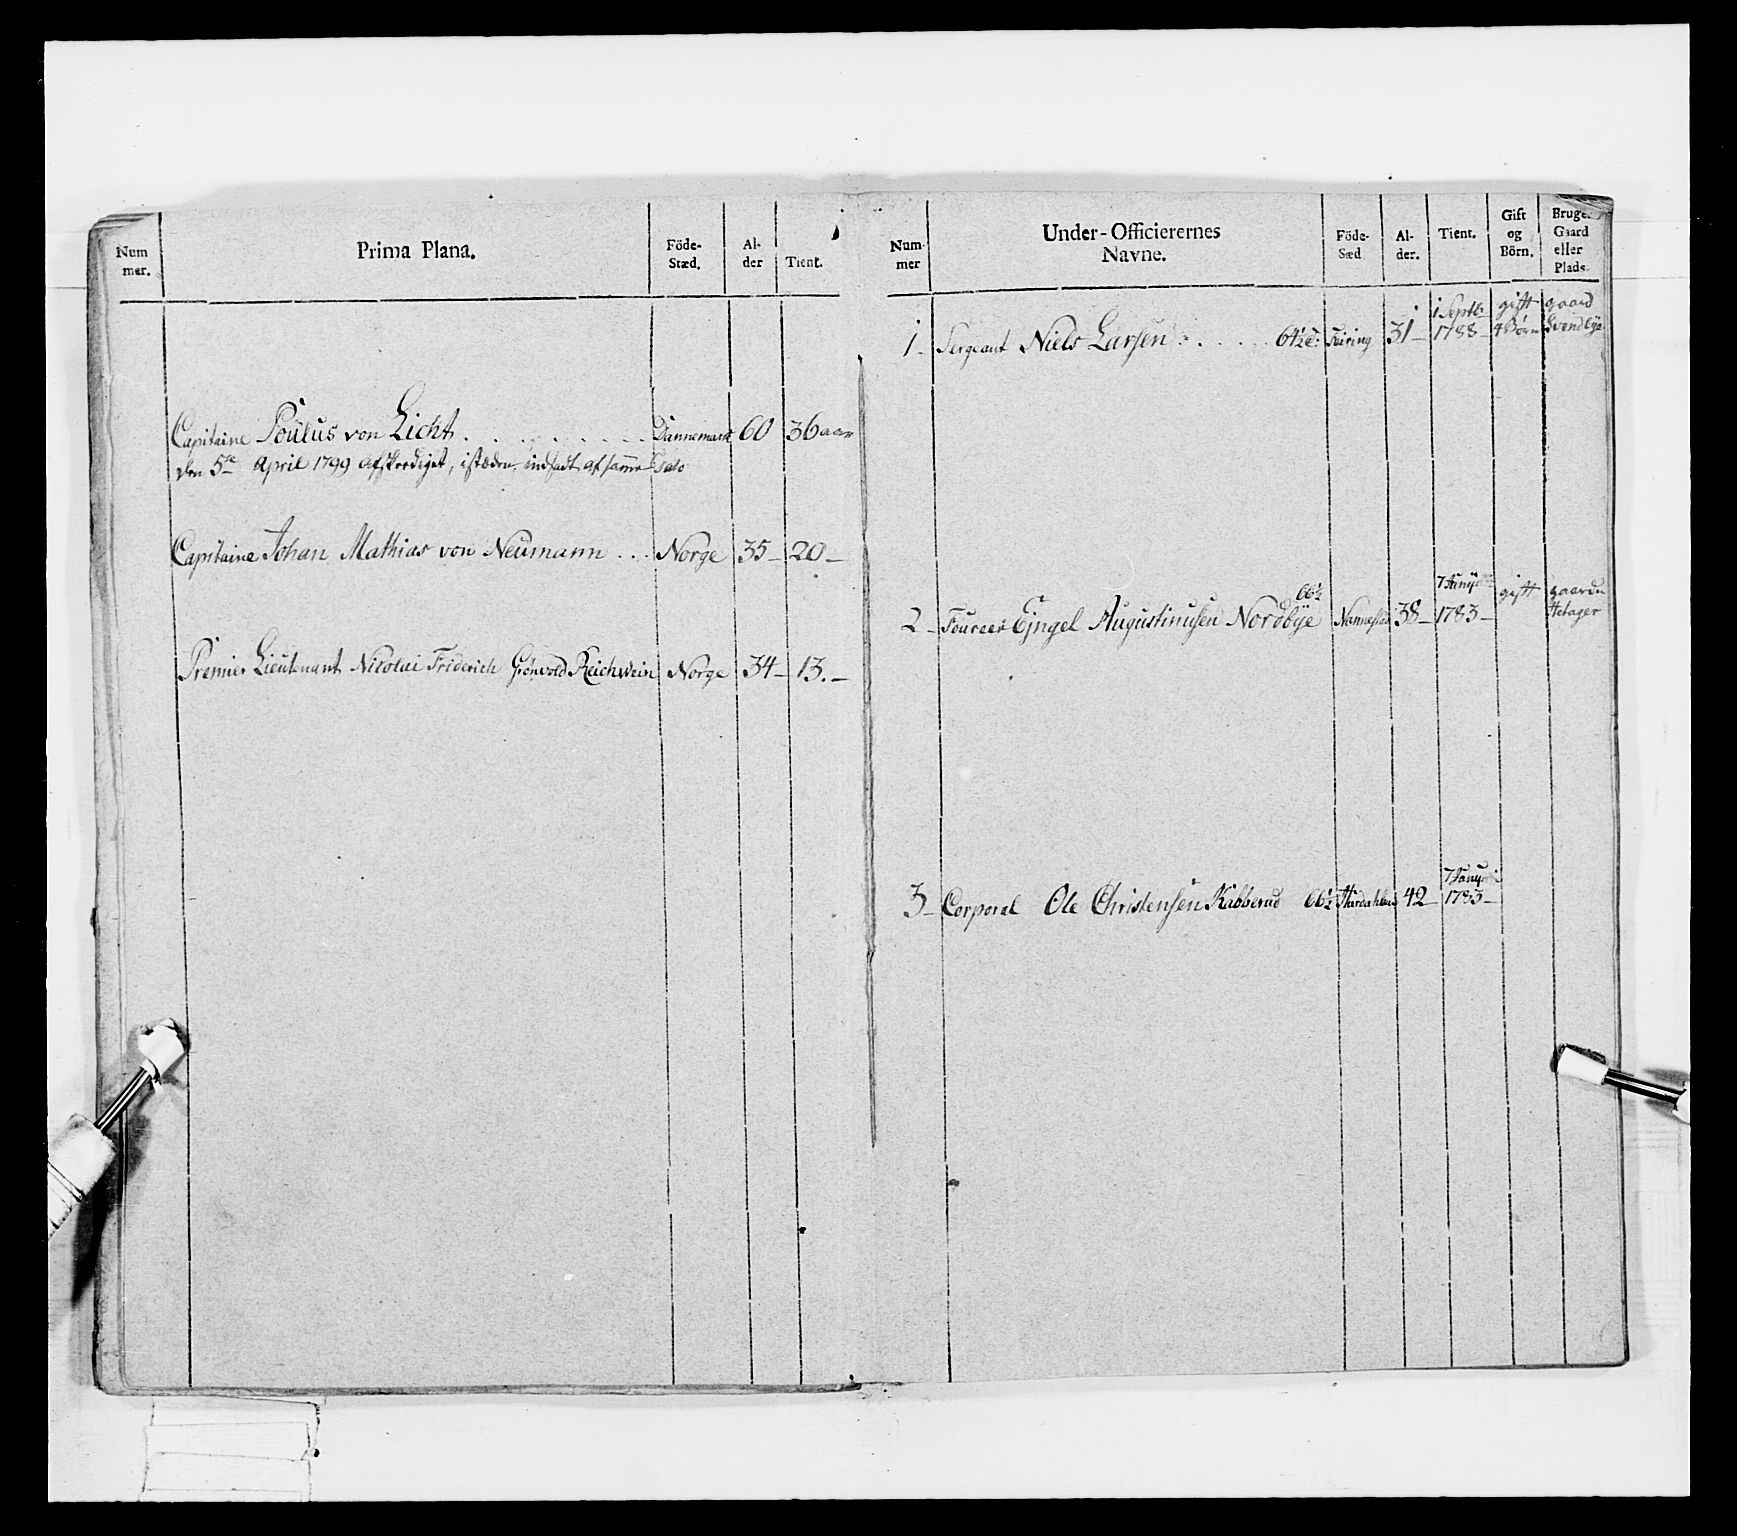 Num
mer.
Prima Plana.
Föde-
Stæd.
Al-
der
Tient.
Capitaine Poulus von Licht . . . . . . . . . Dannemark 60 36 aar
den 5te April 1799 afskeediget, istæden indsadt af samme Dato
Capitaine Johan Mathias von Neumann . . . Norge 35 - 20 -
Premier Lieutenant Nicolai Friderich Grønvold Reichwein Norge 34 - 13. -
Num-
mer
Under-Officierernes
Navne.
Föde-
Sæd
Al-
der.
Tient.
Gift
og
Börn.
Bruger
Gaard
eller
Plads.
1 Septb. gift gaard
1. Sergeant Niels Larsen . . . . . 64½ Feiring 31 - 1788 - 4 Børn Svendbye
66½ 7 Januj gift gaarden
2 - Foureer Ejngel Augustinusen Nordbye Nannestad 38 - 1783 -
7 Januj
3 - Corporal Ole Christensen Kabberud 66½ Hurdahlen 42 - 1783 -